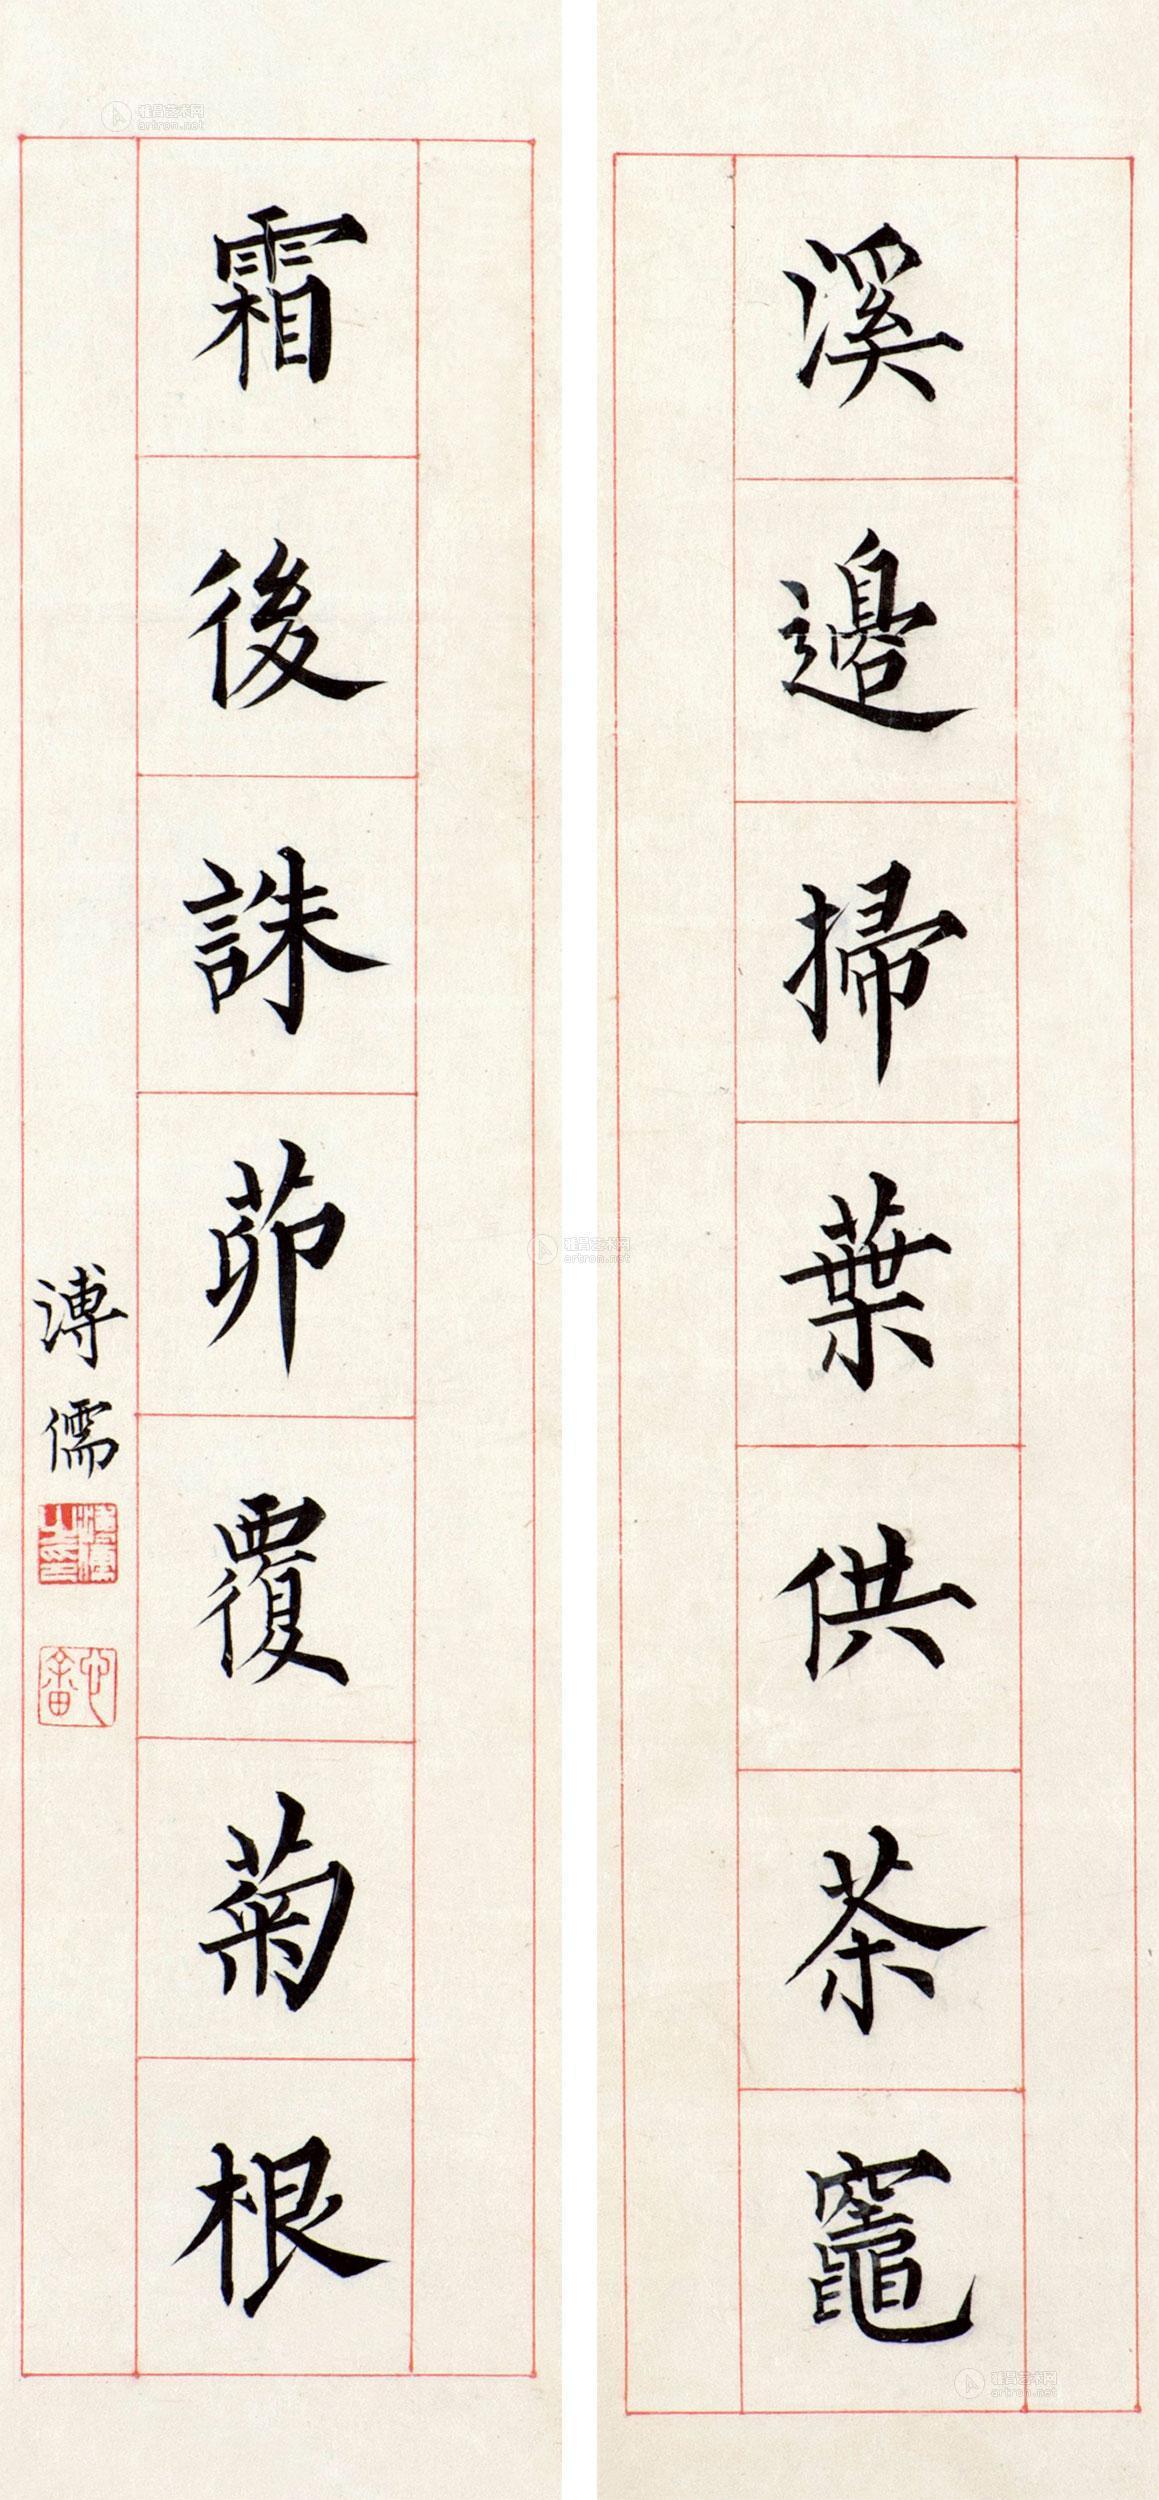 溪邊掃葉供茶竈
霜後誅茆覆菊根
溥儒
雅昌艺术网
artron.net
雅昌艺术网
artron.net
雅昌艺术网
artron.net